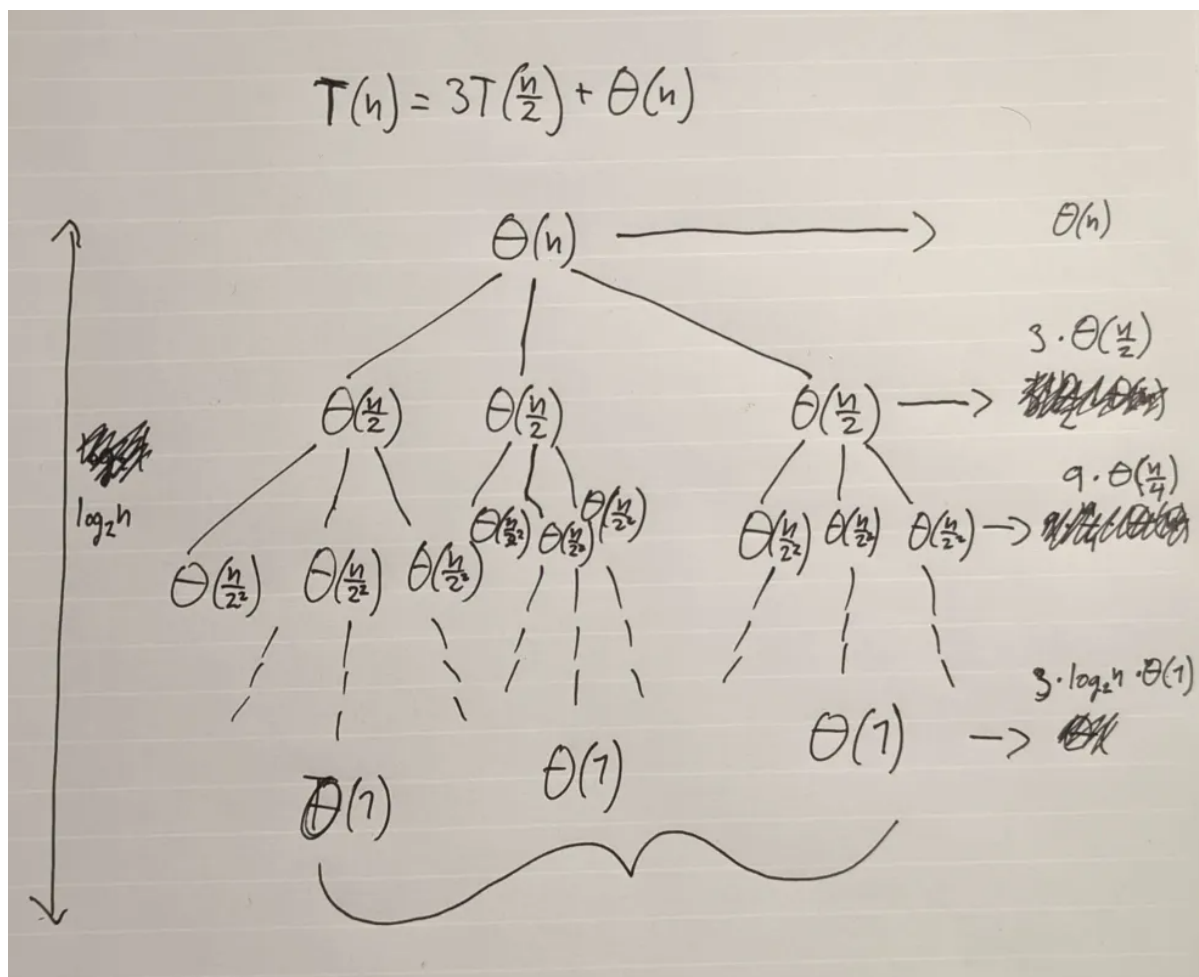 T(n) = 3T(n/2) + Θ(n)
Θ(n) Θ(n)
3·Θ(n/2)
Θ(n/2) Θ(n/2) Θ(n/2)
9·Θ(n/4)
log₂n
Θ(n/2²) Θ(n/2²) Θ(n/2²) Θ(n/2²) Θ(n/2²) Θ(n/2²)
Θ(n/2²) Θ(n/2²) Θ(n/2²)
3·log₂n·Θ(1)
Θ(1) Θ(1) Θ(1)